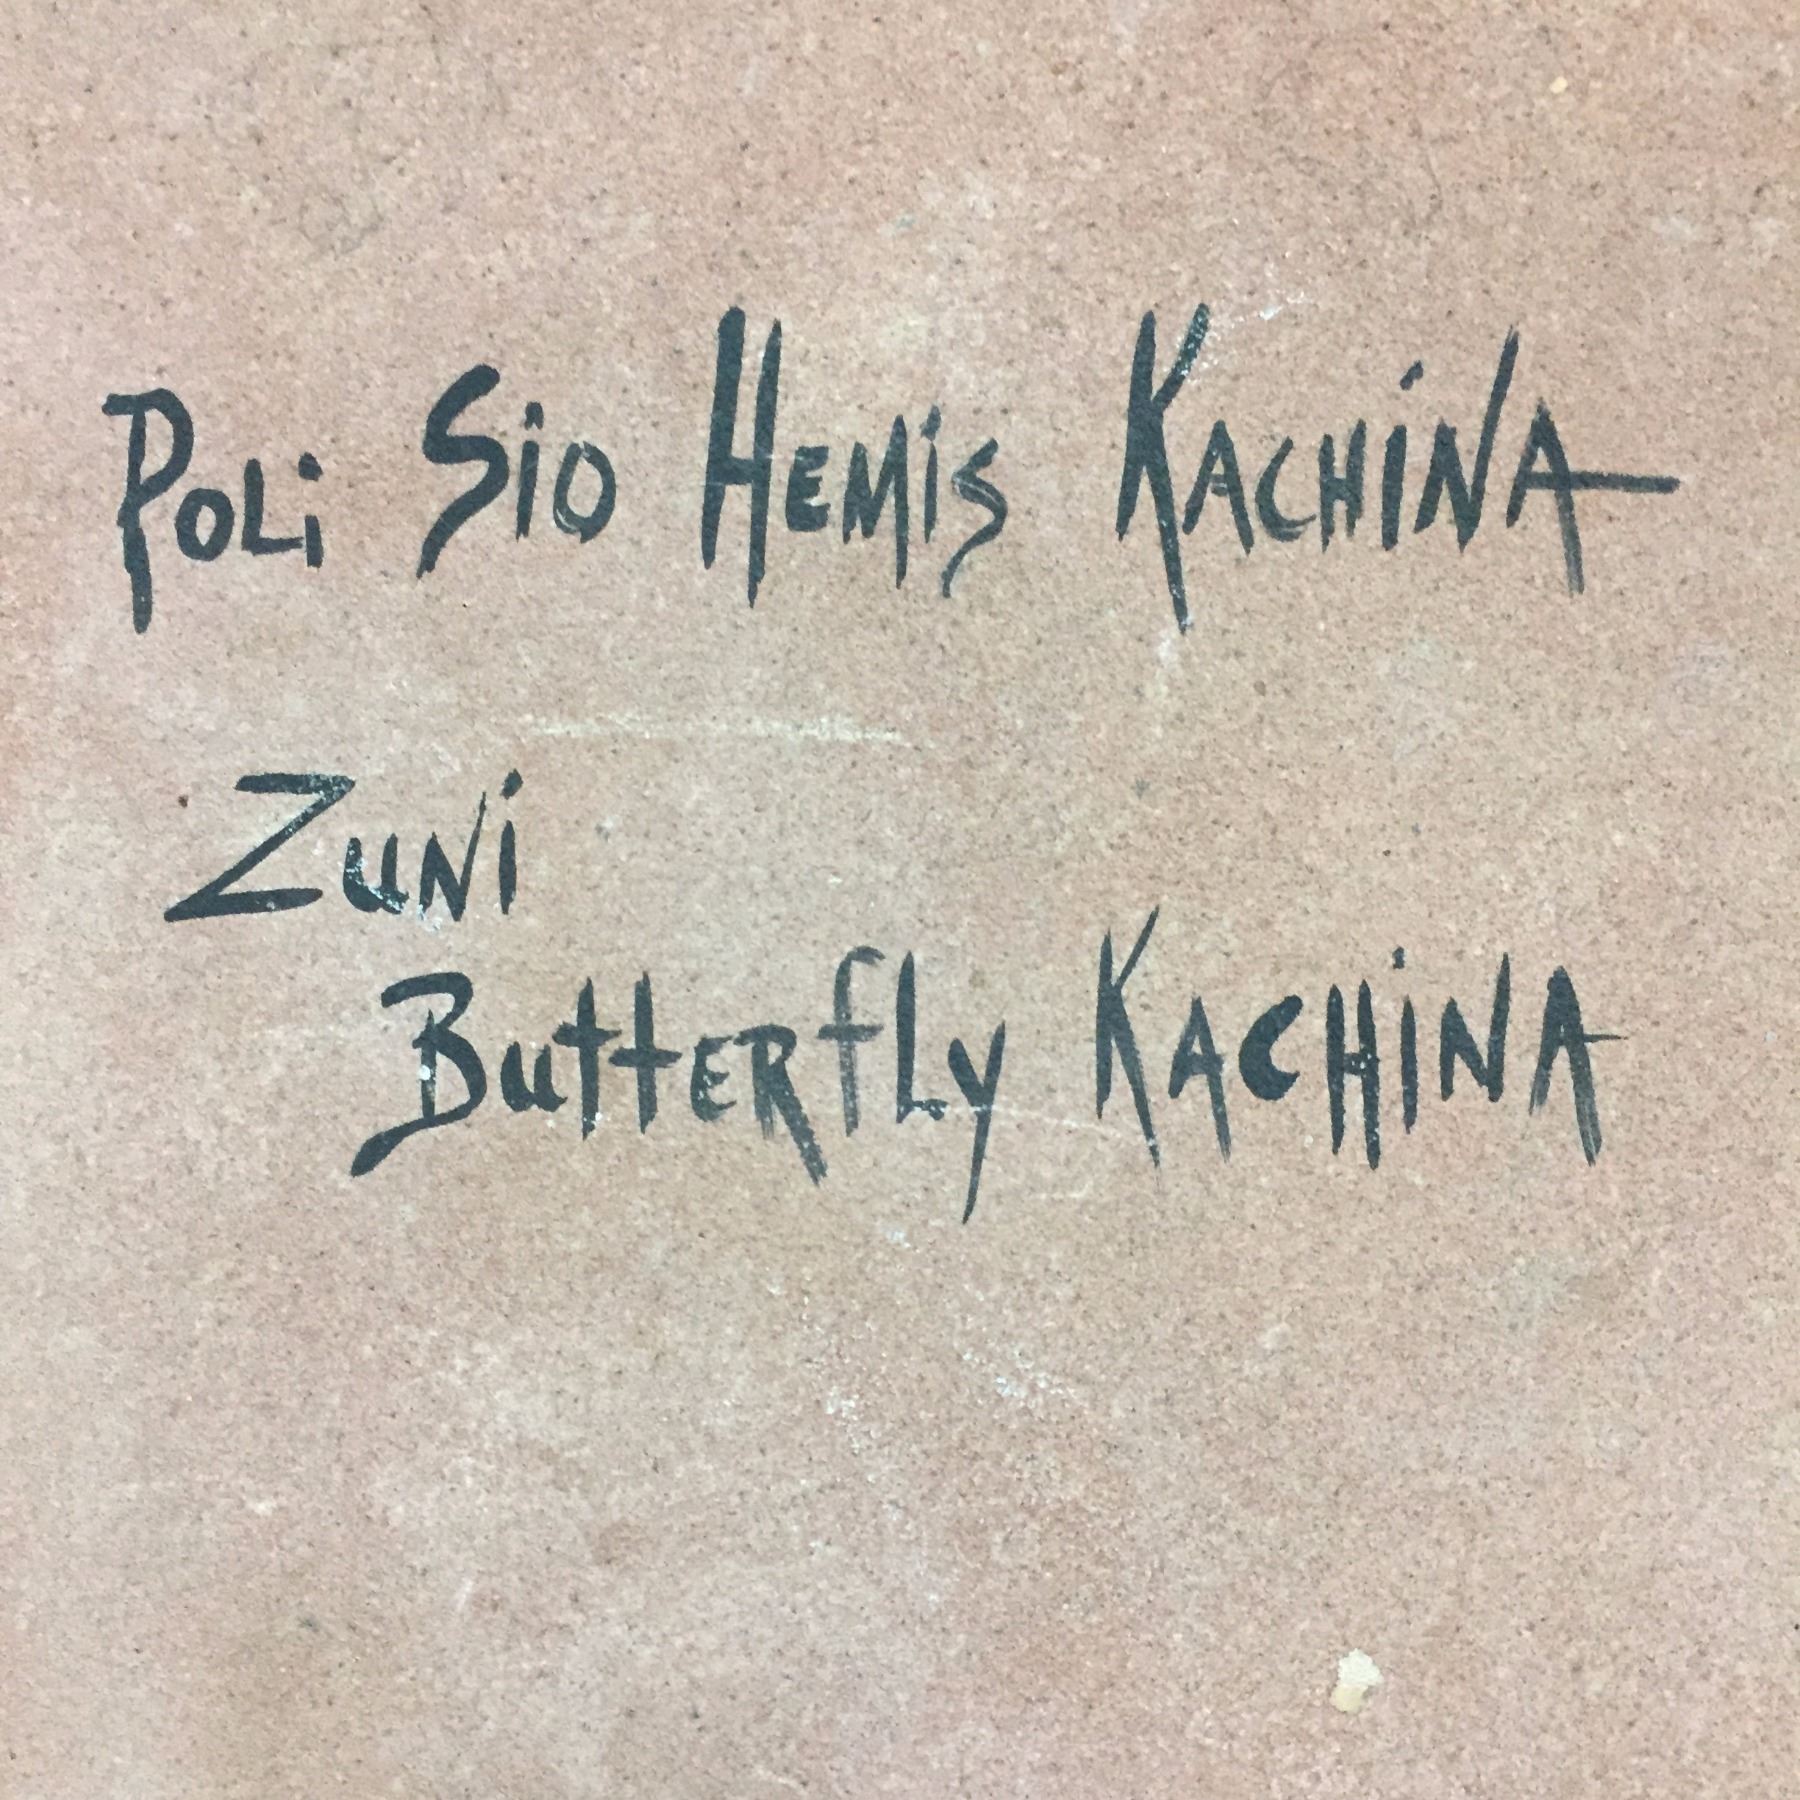 Poli Sio Hemis Kachina
Zuni
Butterfly Kachina